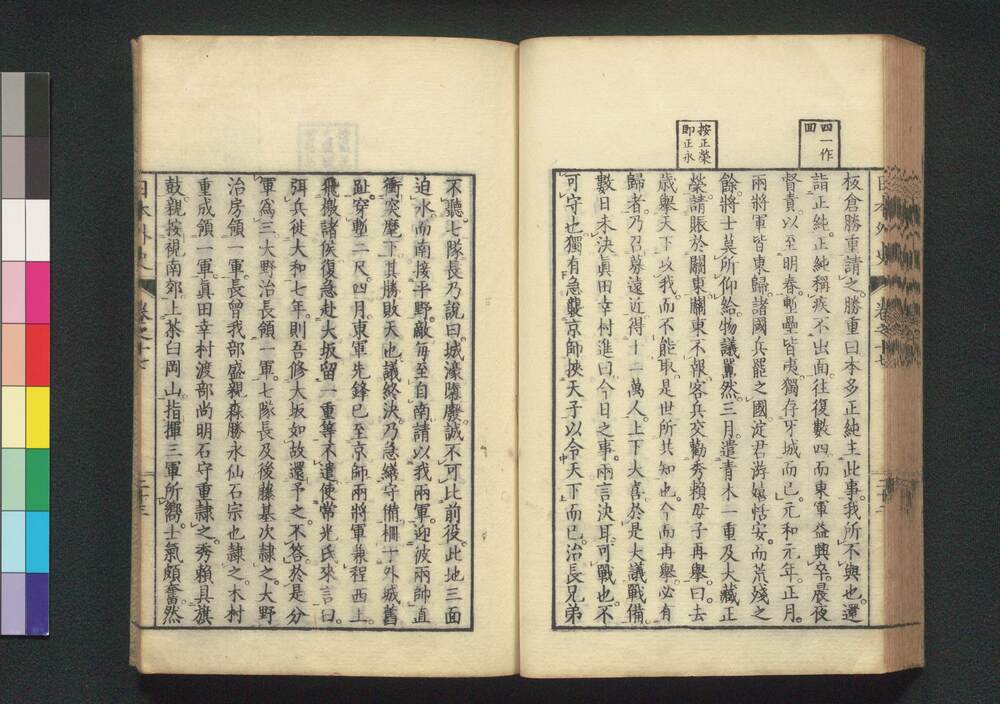 四一作
回
按正榮
即正永
板倉勝重請之勝重曰本多正純主此事我所不與也還
詣正純正純稱疾不出面往復數四而東軍益興卒晨夜
督責以至明春塹壘皆夷獨存牙城而已元和元年正月
兩將軍皆東歸諸國兵罷之國淀君游嬉恬安而荒殘之
餘將士莫所仰給物議囂然三月遣青木一重及大藏正
榮請賑於關東關東不報客兵交勸秀賴母子再舉曰去
歲舉天下攻我而不能取是世所共知也今而再舉必有
歸者乃召募遠近得十二萬人上下大喜於是大議戰備
數日未決眞田幸村進曰今日之事兩言決耳可戰也不
可守也獨有急襲京師挾天子以令天下而已治長兄弟
不聽七隊長乃說曰城濠隳廢誠不可比前役此地三面
迫水而南接平野敵每至自南請以我兩軍迎彼兩帥直
衝突麾下其勝敗天也議終決乃急繕守備柵于外城舊
趾穿塹二尺四月東軍先鋒已至京師兩將軍兼程西上
飛檄諸侯復急赴大坂留一重等不遣使常光氏來言曰
弭兵徙大和七年則吾修大坂如故還予之不答於是分
軍爲三大野治長領一軍七隊長及後藤基次隸之大野
治房領一軍長曾我部盛親森勝永仙石宗也隸之木村
重成領一軍眞田幸村渡部尚明石守重隸之秀賴具旗
鼓親按視南郊上茶臼岡山指揮三軍所嚮士氣頗奮然
日本外史
卷之十七
二十三